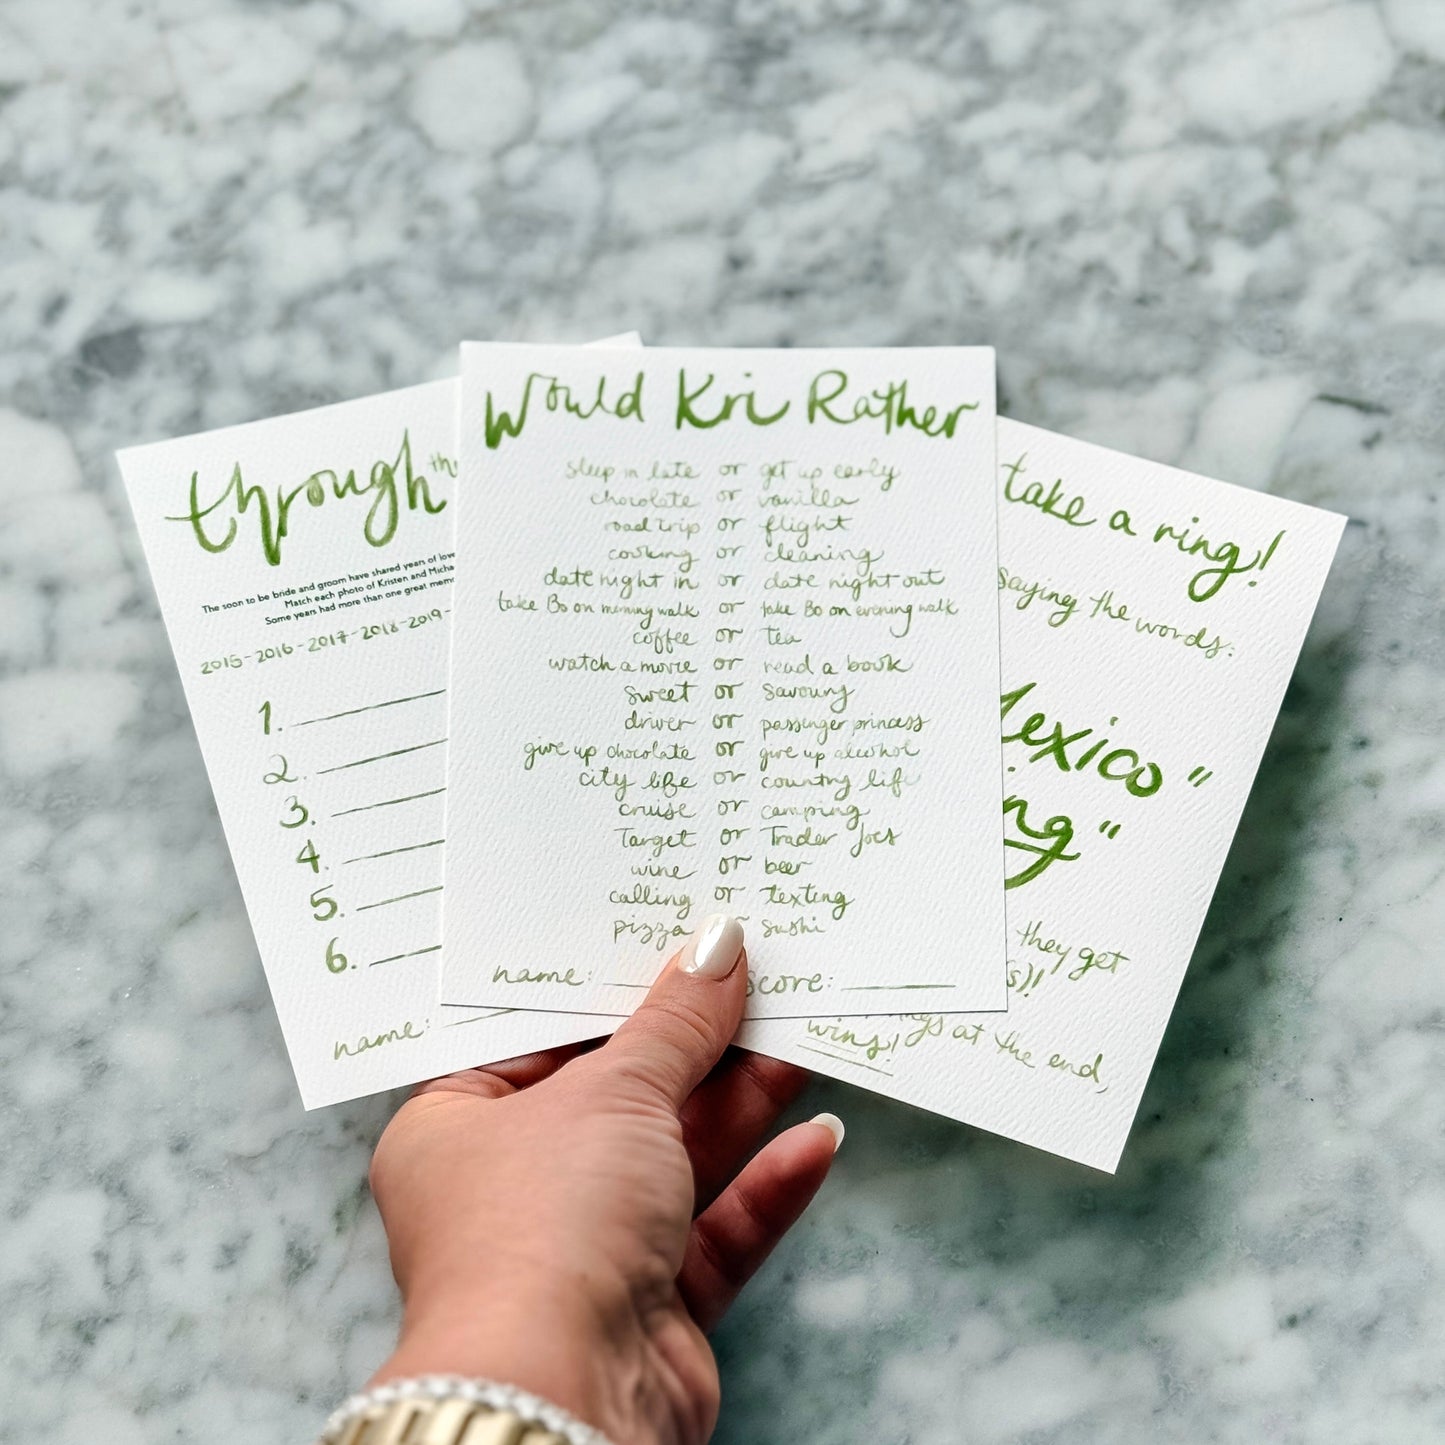 through the
The soon to be bride and groom have shared years of love
Match each photo of Kristen and Micha
Some years had more than one great memo
2015-2016-2017-2018-2019-
1.
2.
3.
4.
5.
6.
name:
Would Kri Rather
sleep in late or get up early
chocolate or vanilla
road trip or flight
cooking or cleaning
date night in or date night out
take Bo on morning walk or take Bo on evening walk
coffee or tea
watch a movie or read a book
sweet or savoury
driver or passenger princess
give up chocolate or give up alcohol
city life or country life
cruise or camping
Target or Trader Joes
wine or beer
calling or texting
pizza sushi
name: score:
take a ring!
saying the words:
exico"
ng"
they get
(s)!
at the end,
wins!